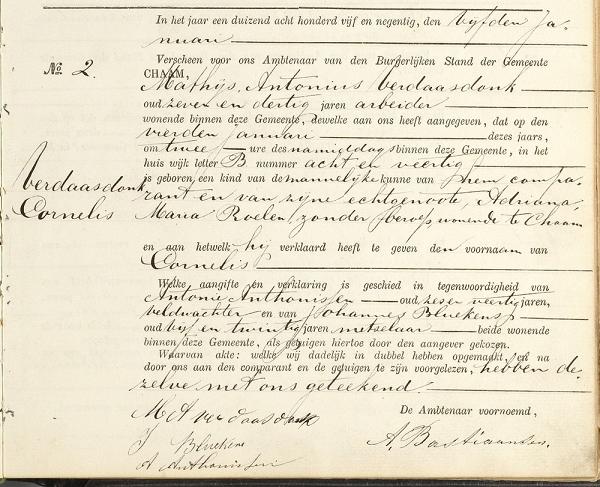 In het jaar een duizend acht honderd vijf en negentig, den Vijfden Ja-
nuari
No. 2.
Verscheen voor ons Ambtenaar van den Burgerlijken Stand der Gemeente
CHAAM,
Mathijs, Antonius Verdaasdonk
oud zeven en dertig jaren arbeider
wonende binnen deze Gemeente, dewelke aan ons heeft aangegeven, dat op den
vierden Januari dezes jaars,
om twee ure des namiddags binnen deze Gemeente, in het
huis wijk letter B nummer acht en veertig
is geboren, een kind van de mannelijke kunne van hem compa-
Verdaasdonk
Cornelis
rant en van zijne echtgenoote, Adriana,
Maria Roelen, zonder beroep, wonende te Chaam
en aan hetwelk hij verklaard heeft te geven den voornaam van
Cornelis
Welke aangifte en verklaring is geschied in tegenwoordigheid van
Antonie Anthonissen oud zes en veertig jaren,
veldwachter en van Johannes Bluekens,
oud vijf en twintig jaren metselaar beide wonende
binnen deze Gemeente, als getuigen hiertoe door den aangever gekozen.
Waarvan akte: welke wij dadelijk in dubbel hebben opgemaakt, en na
door ons aan den comparant en de getuigen te zijn voorgelezen, hebben de-
zelve met ons geteekend.
M A verdaasdonk
De Ambtenaar voornoemd,
J Bluekens
A. Bastiaansen.
A Anthonissen